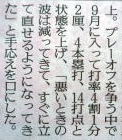 上。プレーオフを争う中で
9月に入って打率4割3分
2厘、4本塁打、14打点と
状態を上げ、「悪いときの
波は減ってきて、すぐに立
て直せるようになってき
た」と手応えを口にした。